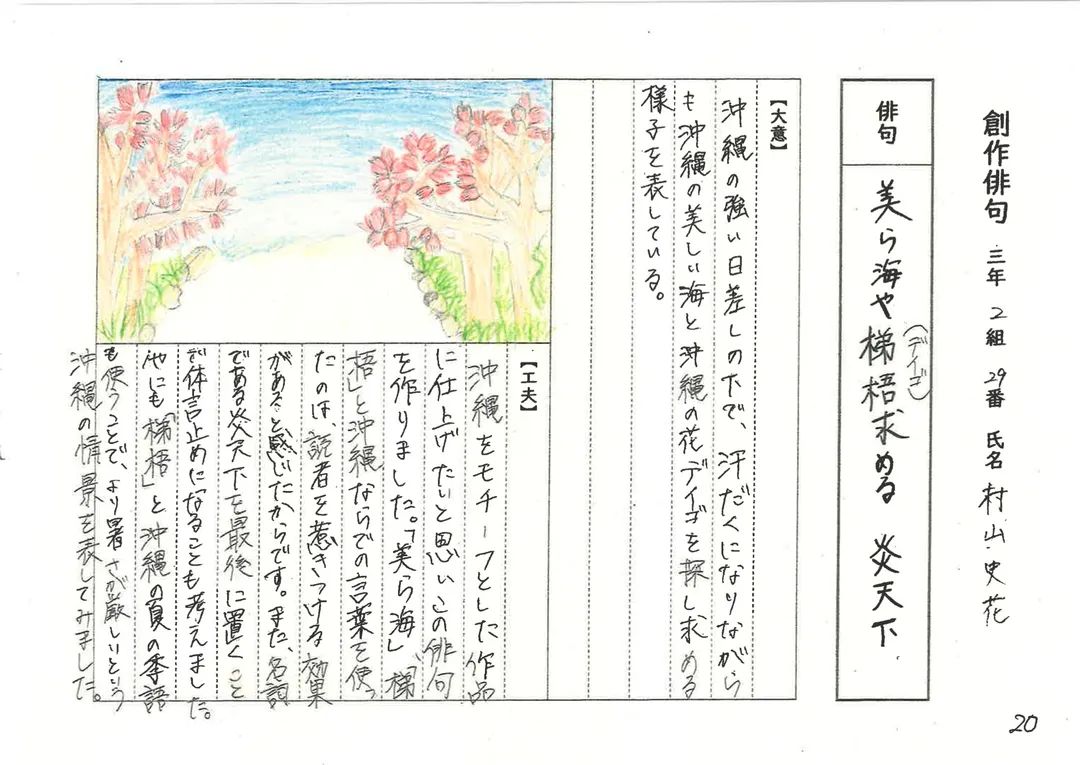 創作俳句 三年 2組 29番 氏名 村山史花
俳句
美ら海や梯梧求める 炎天下
(デイゴ)
【大意】
沖縄の強い日差しの下で、汗だくになりながら
も沖縄の美しい海と沖縄の花デイゴを探し求める
様子を表している。
【工夫】
沖縄をモチーフとした作品
に仕上げたいと思いこの俳句
を作りました。「美ら海」「梯
梧」と沖縄ならでの言葉を使っ
たのは、読者を惹きつける効果
があると感じたからです。また、名詞
である炎天下を最後に置くこと
で体言止めになることも考えました。
他にも「梯梧」と沖縄の夏の季語
も使うことで、より暑さが厳しいという
沖縄の情景を表してみました。
20